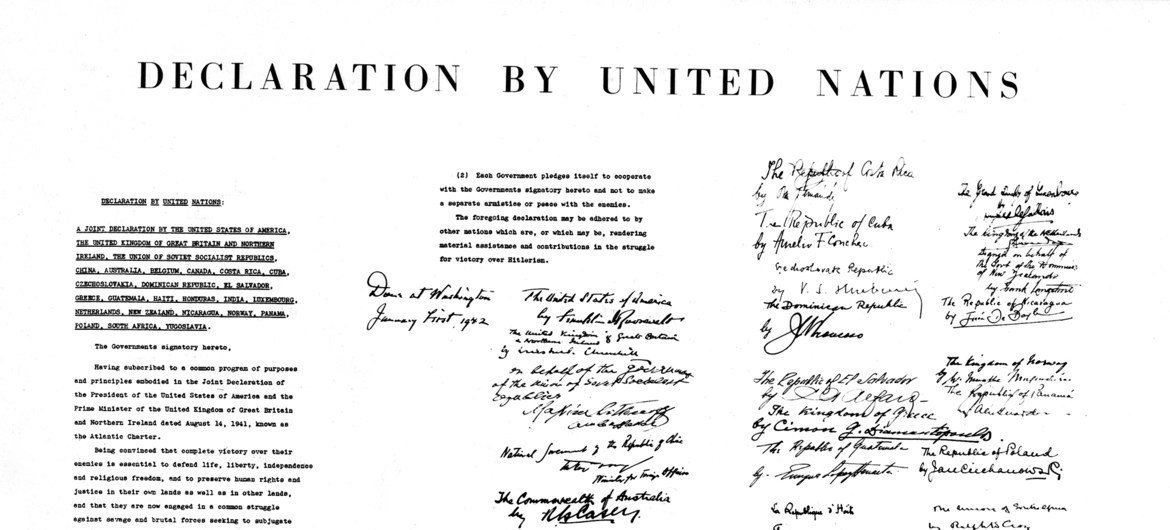 DECLARATION BY UNITED NATIONS
DECLARATION BY UNITED NATIONS:
A JOINT DECLARATION BY THE UNITED STATES OF AMERICA,
THE UNITED KINGDOM OF GREAT BRITAIN AND NORTHERN
IRELAND, THE UNION OF SOVIET SOCIALIST REPUBLICS,
CHINA, AUSTRALIA, BELGIUM, CANADA, COSTA RICA, CUBA,
CZECHOSLOVAKIA, DOMINICAN REPUBLIC, EL SALVADOR,
GREECE, GUATEMALA, HAITI, HONDURAS, INDIA, LUXEMBOURG,
NETHERLANDS, NEW ZEALAND, NICARAGUA, NORWAY, PANAMA,
POLAND, SOUTH AFRICA, YUGOSLAVIA.
The Governments signatory hereto,
Having subscribed to a common program of purposes
and principles embodied in the Joint Declaration of
the President of the United States of America and the
Prime Minister of the United Kingdom of Great Britain
and Northern Ireland dated August 14, 1941, known as
the Atlantic Charter.
Being convinced that complete victory over their
enemies is essential to defend life, liberty, independence
and religious freedom, and to preserve human rights and
justice in their own lands as well as in other lands,
and that they are now engaged in a common struggle
against savage and brutal forces seeking to subjugate
(2) Each Government pledges itself to cooperate
with the Governments signatory hereto and not to make
a separate armistice or peace with the enemies.
The foregoing declaration may be adhered to by
other nations which are, or which may be, rendering
material assistance and contributions in the struggle
for victory over Hitlerism.
Done at Washington
January First, 1942
The United States of America
by Franklin D Roosevelt
The United Kingdom of Great Britain
& Northern Ireland
by Winston S. Churchill
on behalf of the Government
of the Union of Soviet Socialist
Republics
Maxim Litvinoff
Ambassador
National Government of the Republic of China
Minister for Foreign Affairs
The Commonwealth of Australia
by R G Casey
The Republic of Costa Rica
by
The Republic of Cuba
by Aurelio F. Concheso
Republic
by V. S. Hurban
The Dominican Republic
by
The Republic of El Salvador
by
The Kingdom of Greece
by Cimon G. Diamantopoulos
The Republic of Guatemala
by
La Republique d'Haiti
The Grand Duchy of Luxembourg
by
The Kingdom of the Netherlands
Signed on behalf of
the Govt of the Dominion
of New Zealand
by Frank Langstone
The Republic of Nicaragua
by
The Kingdom of Norway
by
The Republic of Panamá
by
The Republic of Poland
by Jan Ciechanowski
The Union of South Africa
by Ralph W. Close